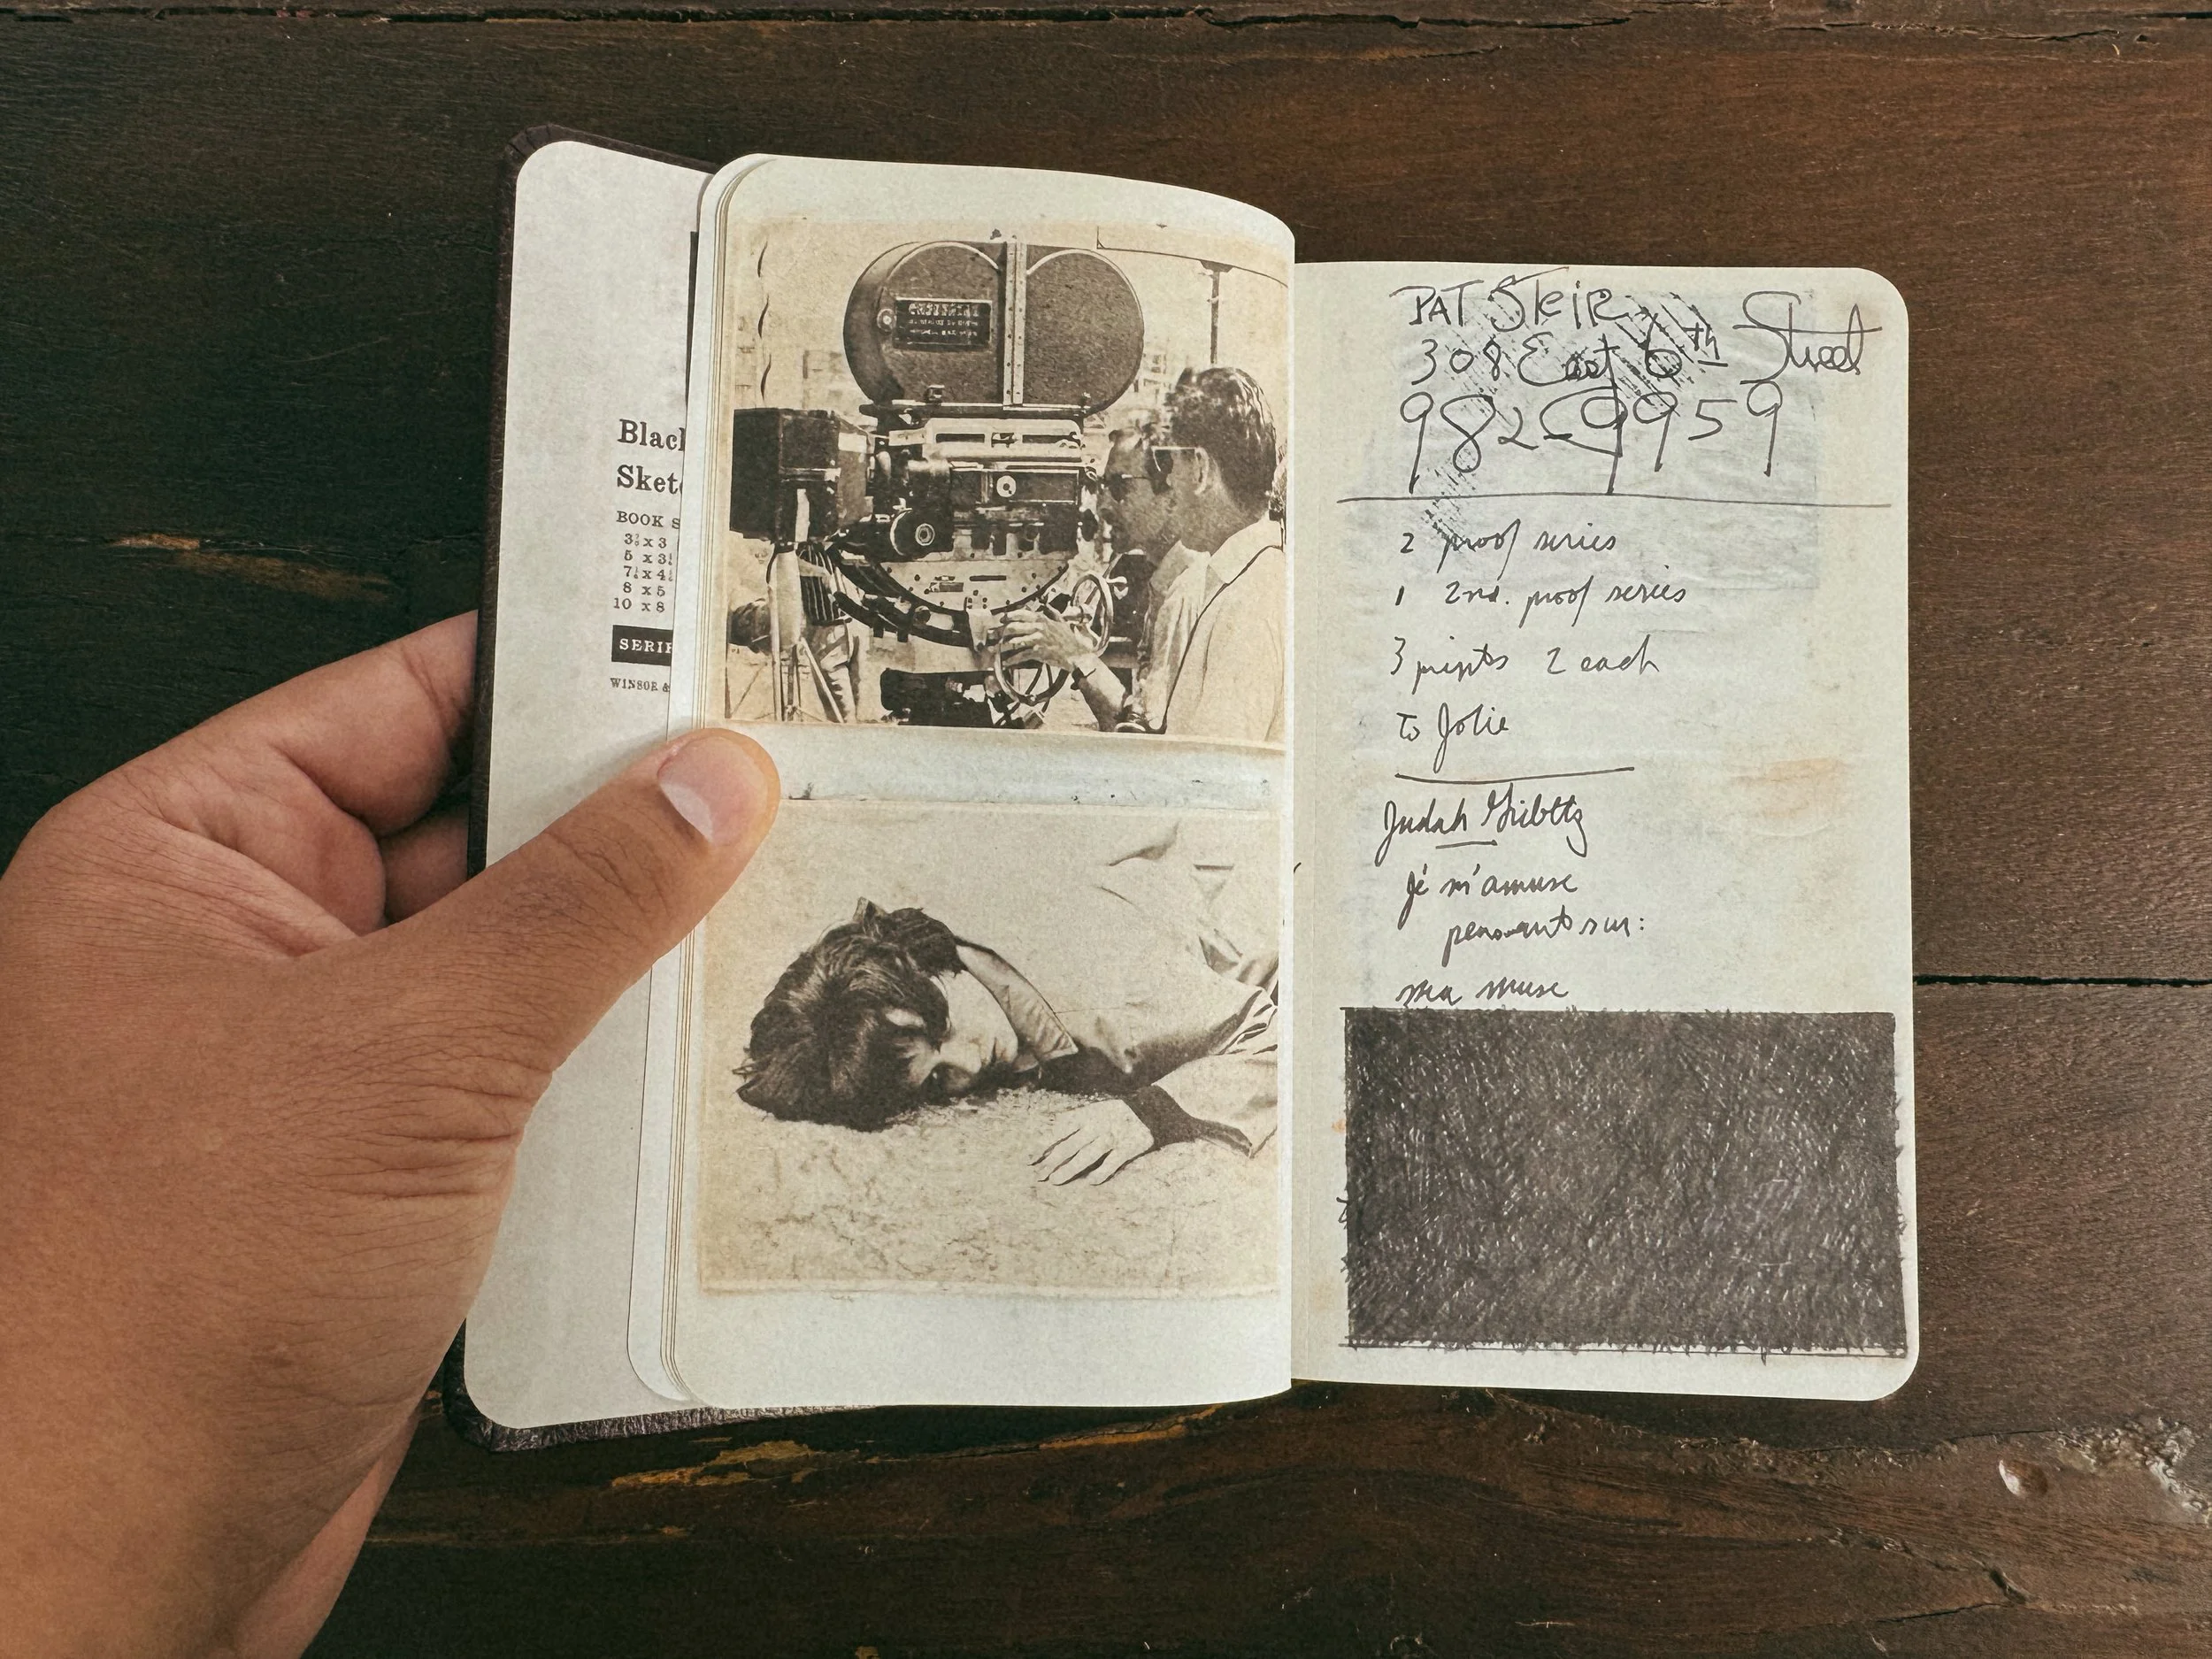 Blac
Sket
BOOK S
5 x 3½
8 x 5
10 x 8
SERIE
WINSOR &
PAT SteiR
308 East 6th Street
982-9959
2 proof series
1 2nd. proof series
3 prints 2 each
to Jolie
Judah
je m'amuse
pensant sur:
ma muse